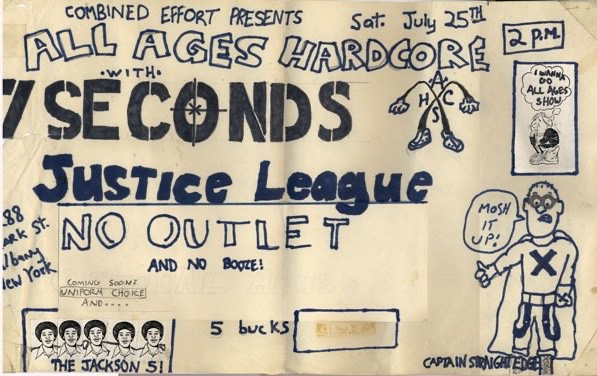 COMBINED EFFORT PRESENTS
SAT. JULY 25TH
2 P.M.
ALL AGES HARDCORE
·WITH·
7 SECONDS
A
H C
S
I WANNA
GO
ALL AGES
SHOW
JUSTICE LEAGUE
NO OUTLET
AND NO BOOZE!
88
ARK ST.
lbany
New York
MOSH
IT
UP!
X
COMING SOON:
UNIFORM CHOICE
AND....
5 bucks
THE JACKSON 5!
CAPTAIN STRAIGHT EDGE